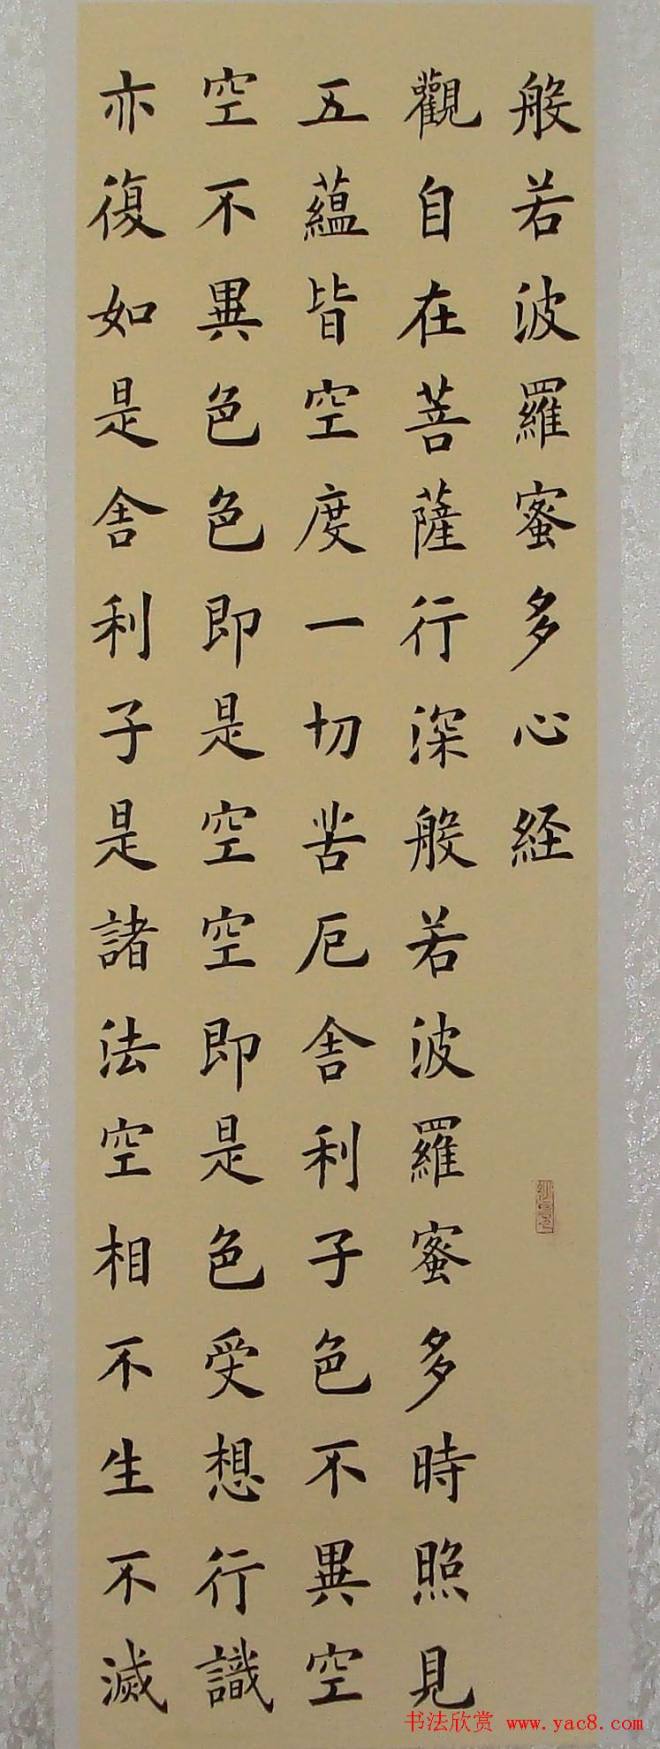 般若波羅蜜多心経
觀自在菩薩行深般若波羅蜜多時照見
五蘊皆空度一切苦厄舍利子色不異空
空不異色色即是空空即是色受想行識
亦復如是舍利子是諸法空相不生不滅
书法欣赏 www.yac8.com